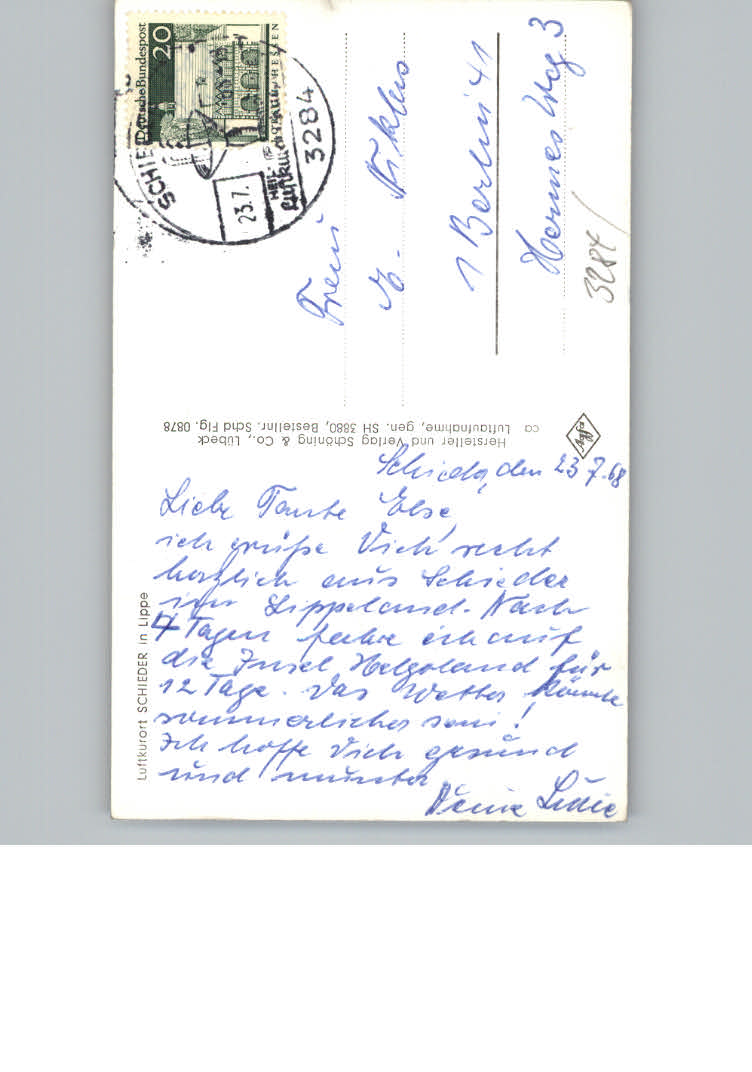 Deutsche Bundespost
20
HESSEN
SCHIE
23.7.
3284
Frau
E. Niklas
1 Berlin 41
Hermes Weg 3
3284
Hersteller und Verlag Schöning & Co., Lübeck
ca Luftaufnahme, gen. SH 3880, Bestellnr. Schd Flg. 0878
Agfa
Luftkurort SCHIEDER in Lippe
Schieder, den 23.7.68
Liebe Tante Else,
ich grüße Dich recht
herzlich aus Schieder
im Lippeland. Nach
4 Tagen fahre ich auf
die Insel Helgoland für
12 Tage. Das Wetter könnte
sommerlicher sein!
Ich hoffe Dich gesund
und munter
Deine